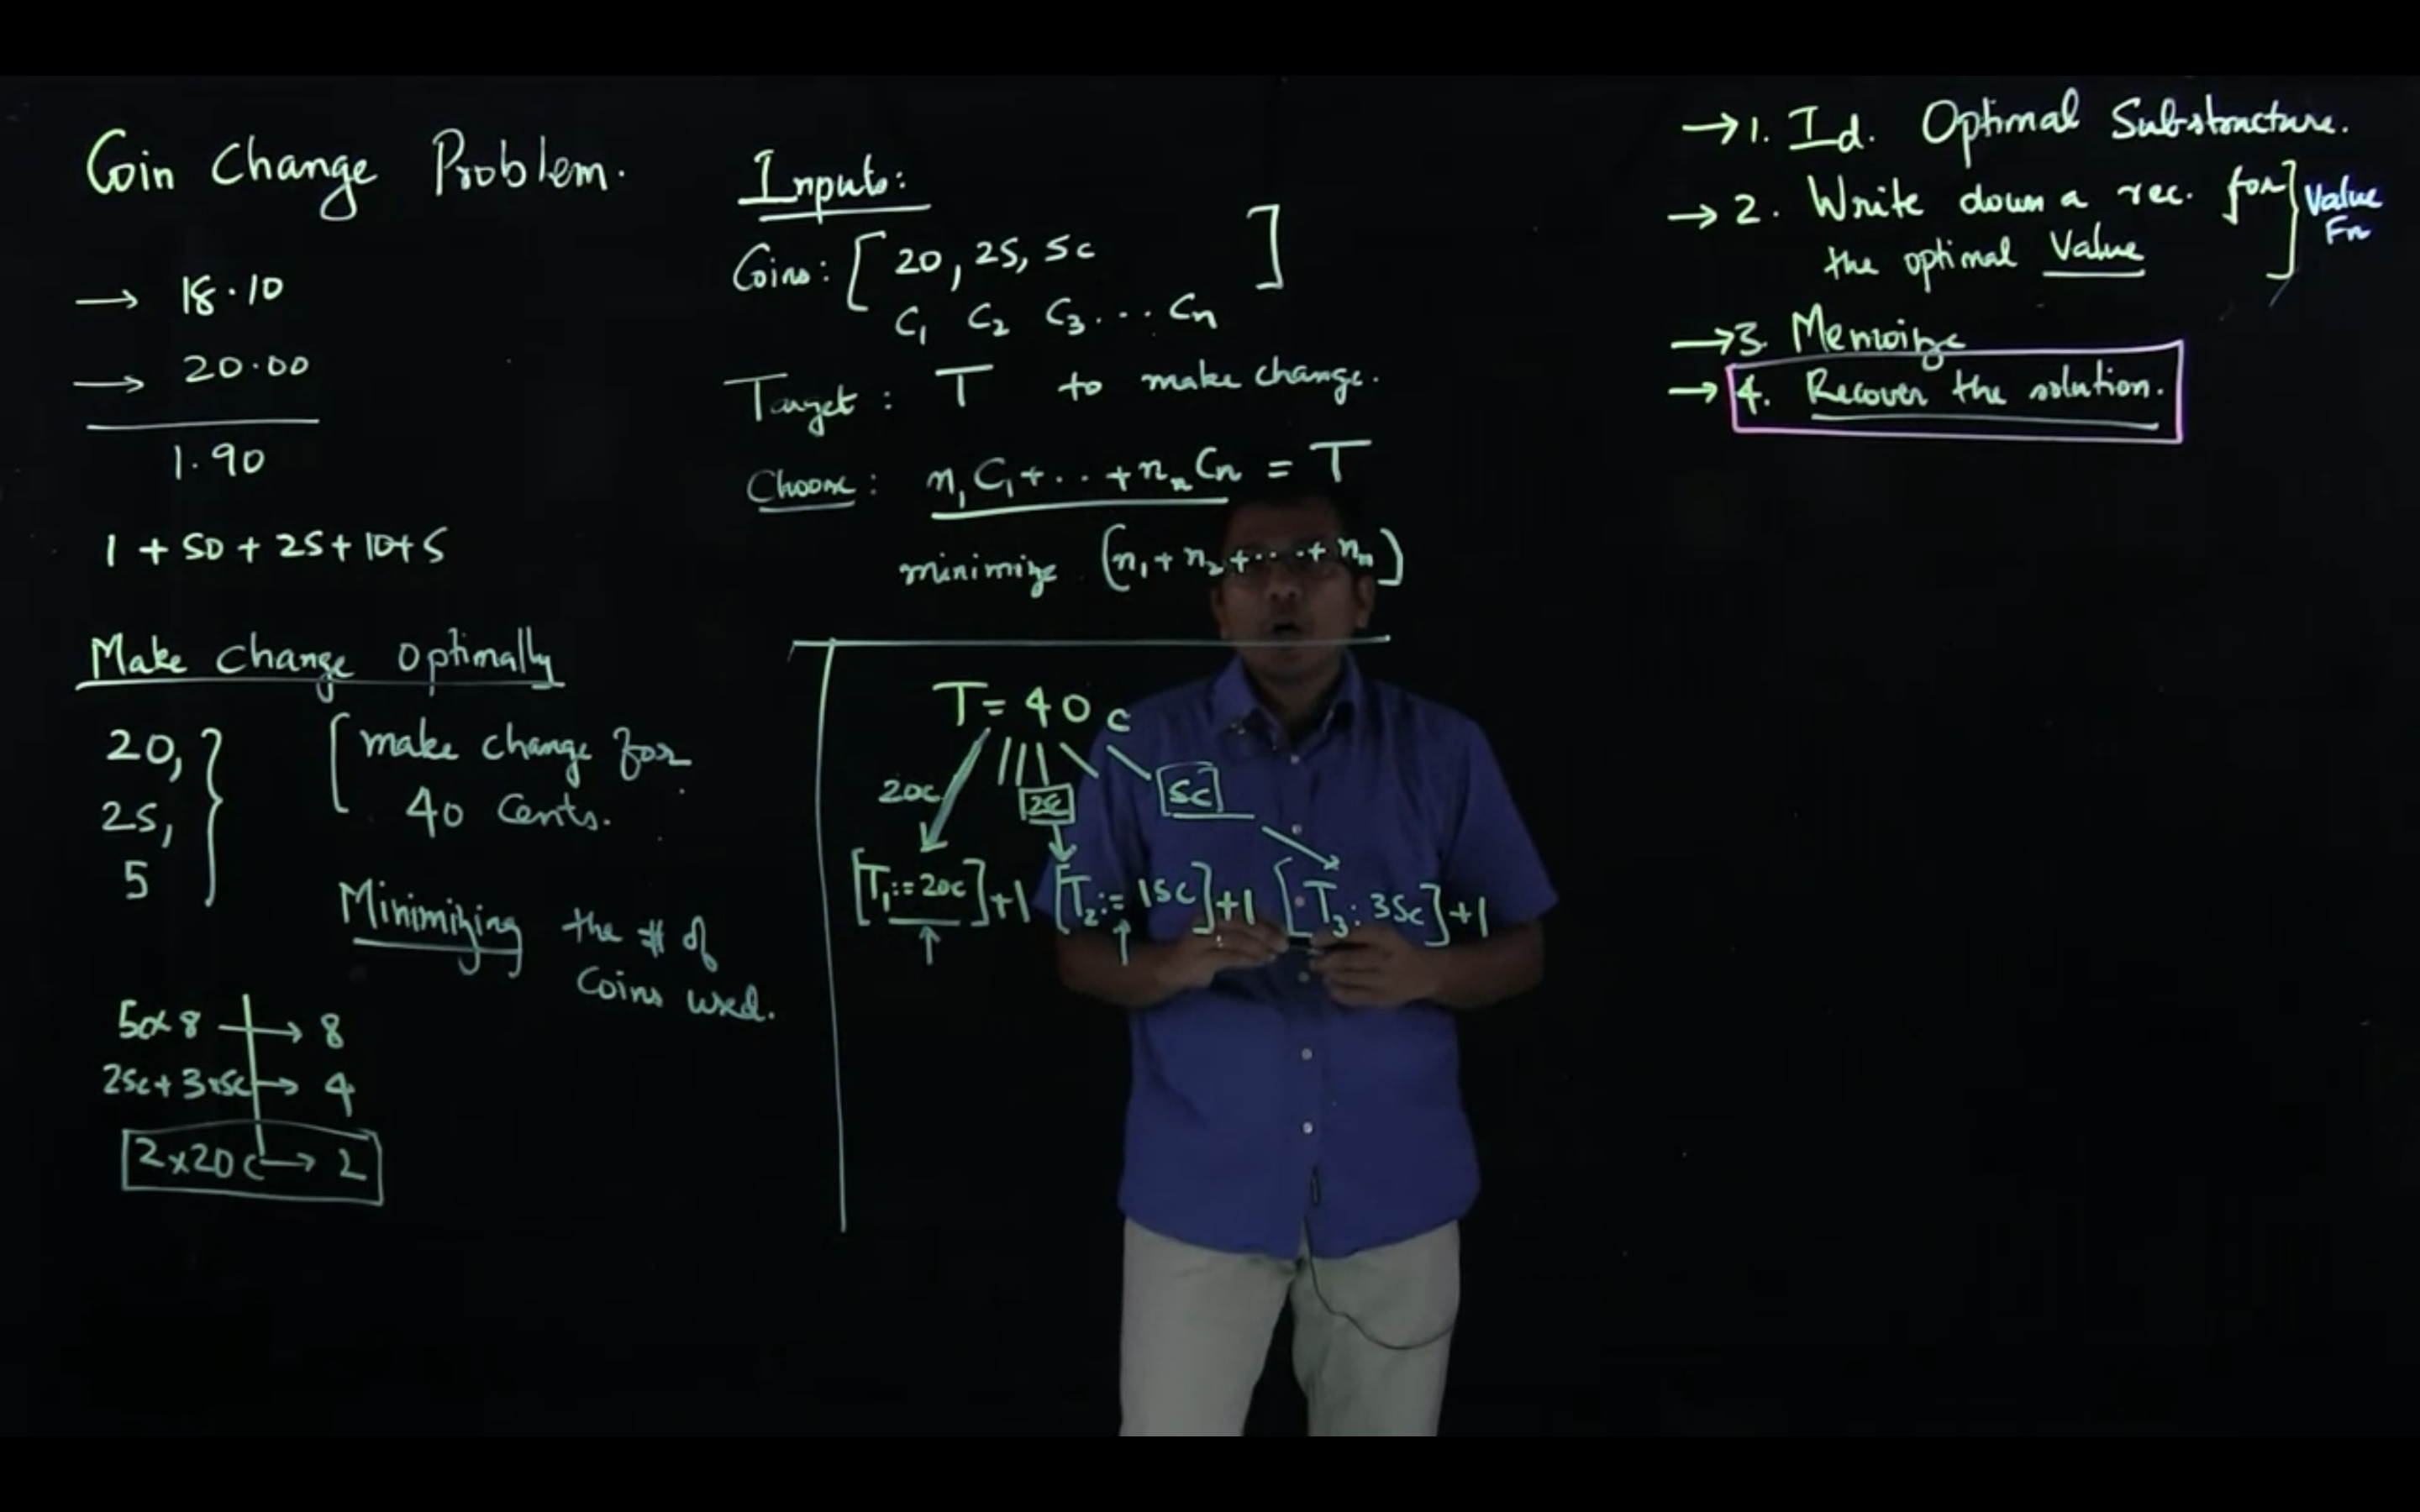 Coin Change Problem.
→ 18.10
→ 20.00
1.90
1 + 50 + 25 + 10 + 5
Make change optimally
20,
25,
5
[make change for
40 Cents.
Minimizing the # of
Coins used.
5c x 8 → 8
25c + 3x5c → 4
2x20c → 2
Inputs:
Coins: [20, 25, 5c ]
C₁ C₂ C₃ ... Cₙ
Target: T to make change.
Choose: n₁C₁ + .. + nₙCₙ = T
minimize (n₁ + n₂ + ... + nₙ)
T = 40c
20c 25c 5c
[T₁ := 20c] +1 [T₂ := 15c] +1 [T₃ : 35c] +1
→ 1. Id. Optimal Substructure.
→ 2. Write down a rec. for
the optimal Value
] Value
Fn
→ 3. Memoize
→ 4. Recover the solution.